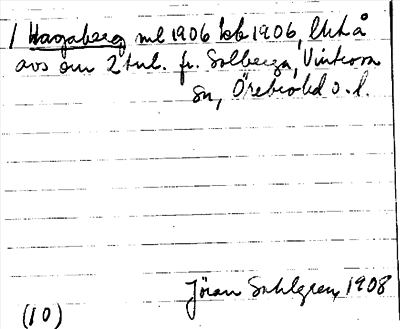 1 Hagaberg ml 1906 kb 1906,
avs om 2 tul. fr. Solberga, Vintrosa
sn, Örebro hd o. l.
Jöran Sahlgren 1908
(10)